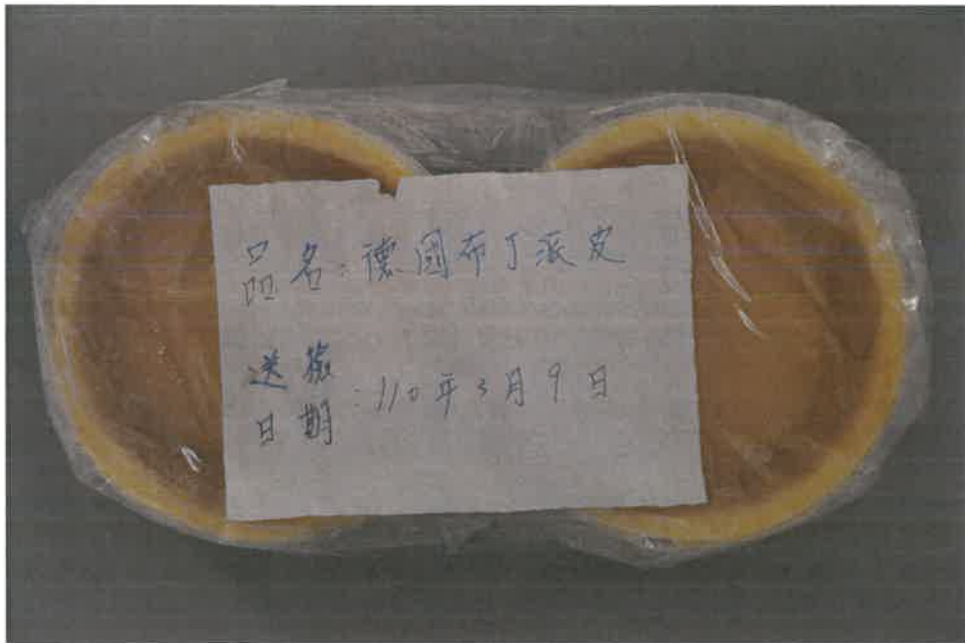 品名：德國布丁派皮
送驗
日期：110年3月9日